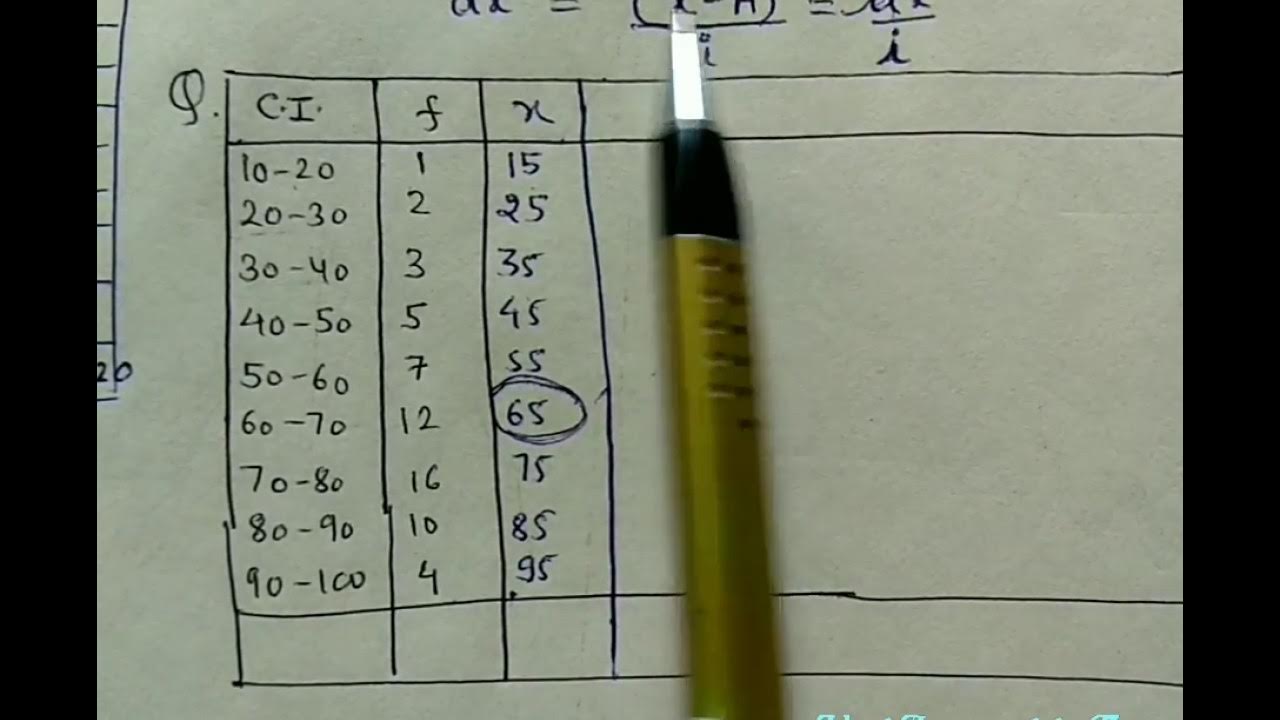 i i
Q. C.I. f x
10-20 1 15
20-30 2 25
30-40 3 35
40-50 5 45
50-60 7 55
60-70 12 65
70-80 16 75
80-90 10 85
90-100 4 95
20